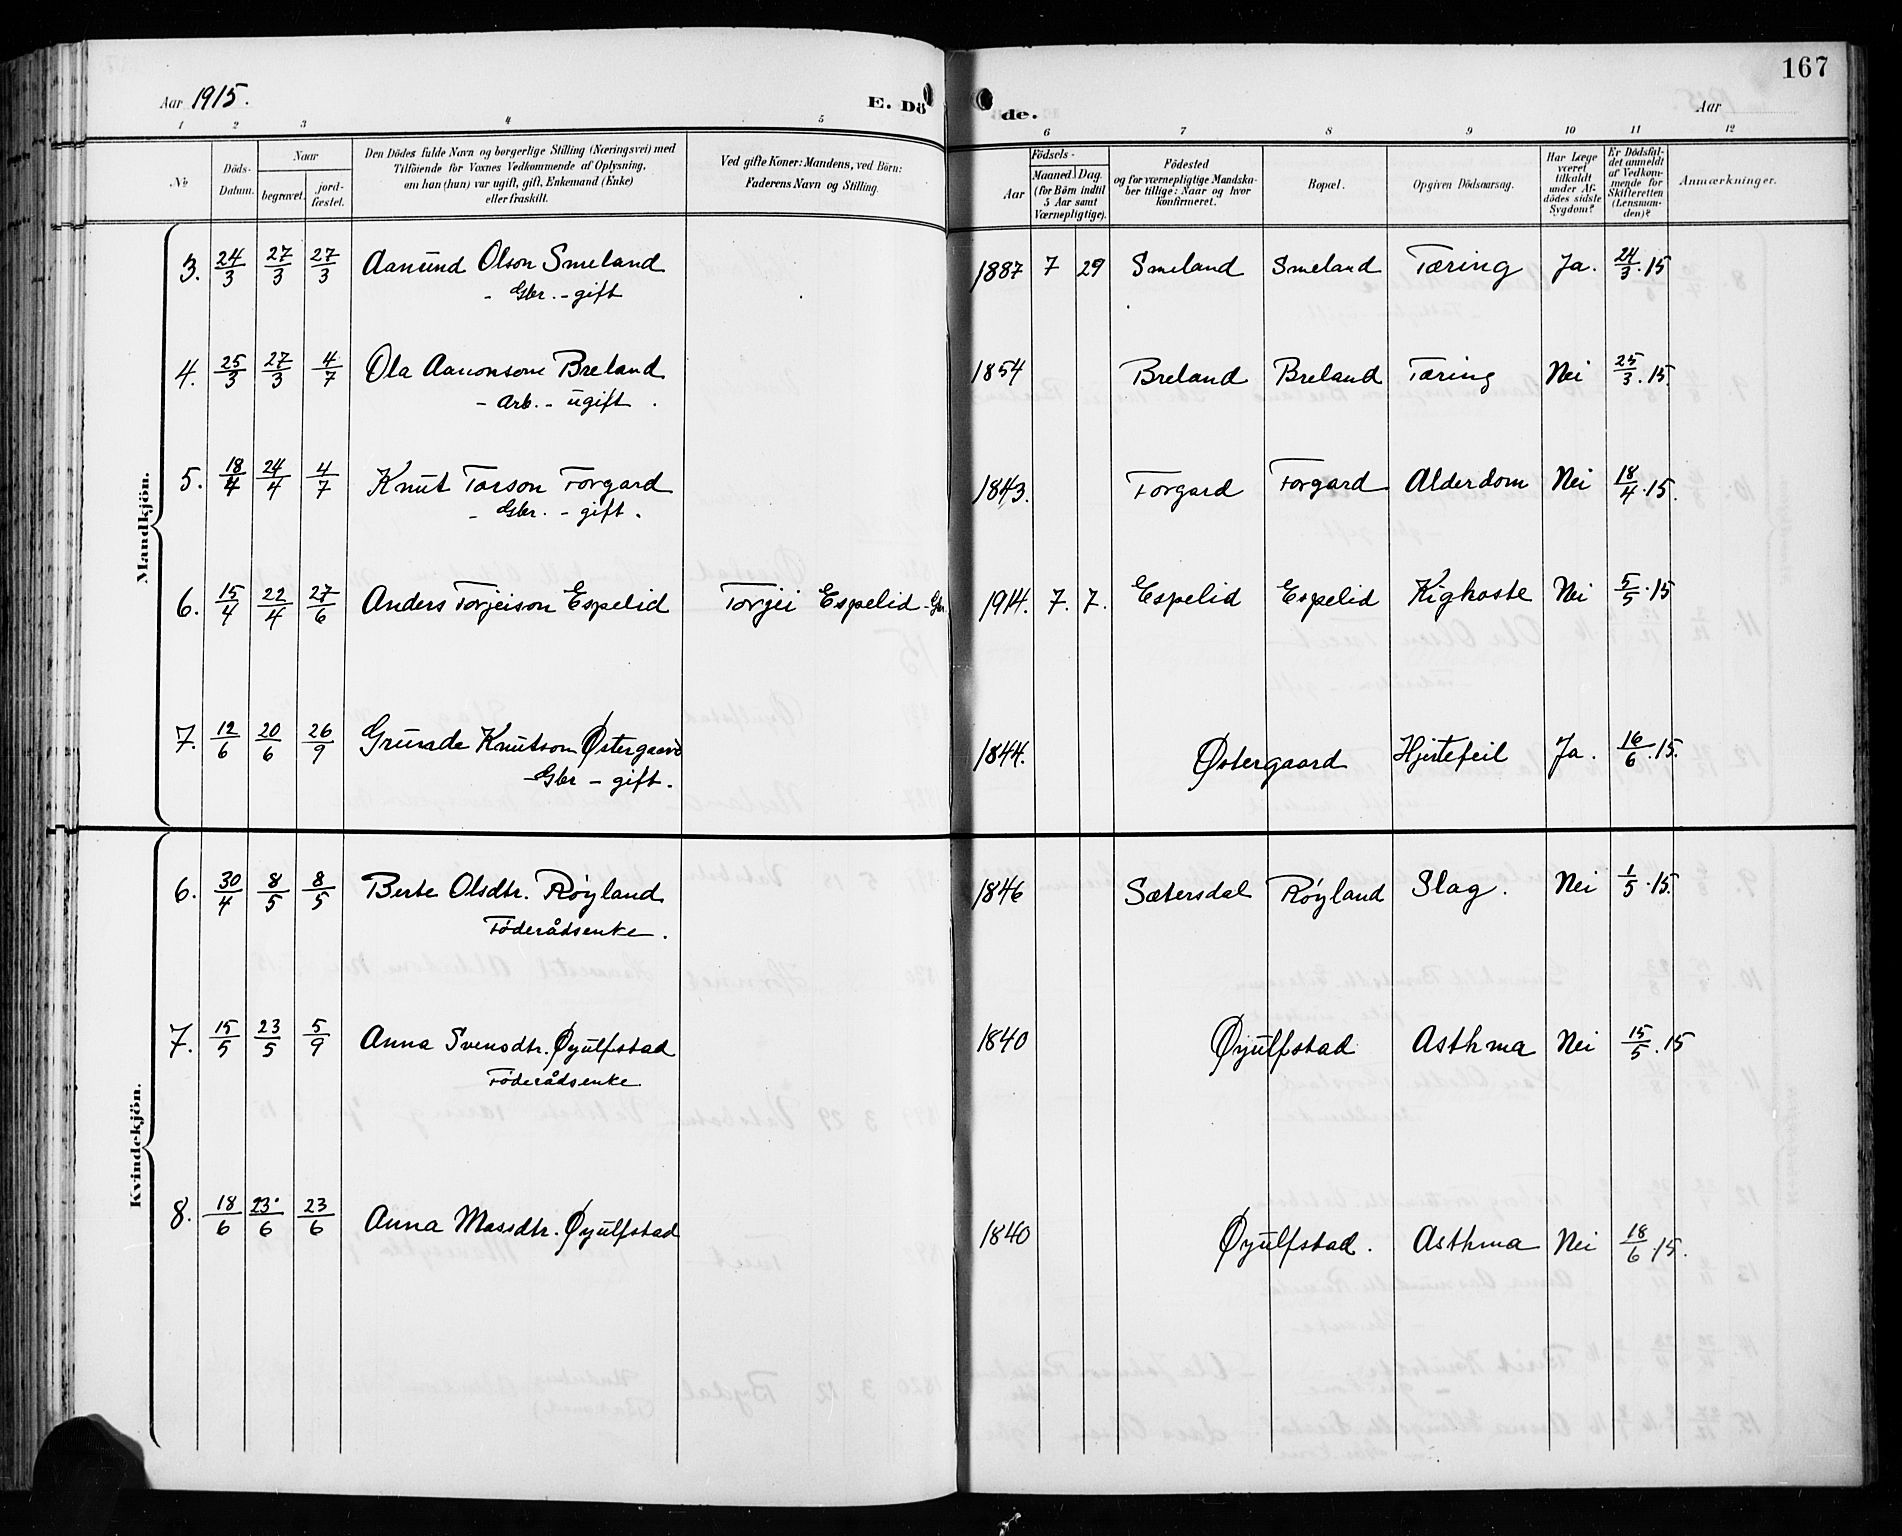 167
Aar 1915.
E. Dö de.
Aar
1 2 3 4 5 6 7 8 9 10 11 12
No
Döds-Datum.
Naar
begravet.
jord-fæstet.
Den Dödes fulde Navn og borgerlige Stilling (Næringsvei) med
Tilföiende for Voxnes Vedkommende af Oplysning,
om han (hun) var ugift, gift, Enkemand (Enke)
eller fraskilt.
Ved gifte Koner: Mandens, ved Börn:
Faderens Navn og Stilling.
Födsels-
Aar
Maaned. Dag.
(for Börn indtil
5 Aar samt
Værnepligtige).
Födested
og for værnepligtige Mandska-
ber tillige: Naar og hvor
konfirmeret.
Bopæl.
Opgiven Dödsaarsag.
Har Læge
været
tilkaldt
under Af-
dödes sidste
Sygdom?
Er Dödsfal-
det anmeldt
af Vedkom-
mende for
Skifteretten
(Lensman-
den)?
Anmærkninger.
Mandkjön.
3. 24/3 27/3 27/3 Aanund Olson Smeland 1887 7 29 Smeland Smeland Tæring Ja. 24/3.15
- Gbr. - gift
4. 25/3 27/3 4/7 Ola Aanonsom Breland 1854 Breland Breland Tæring Nei 25/3.15.
- Arb. - ugift.
5. 18/4 24/4 4/7 Knut Tarson Forgard 1843. Forgard Forgard Alderdom Nei 18/4.15.
- Gbr. - gift.
6. 15/4 22/4 27/6 Anders Torjeison Espelid Torjei Espelid - Gbr. 1914. 7. 7. Espelid Espelid Kighoste Nei 5/5.15
7. 12/6 20/6 26/9 Grunde Knutson Østergaard 1844. Østergaard Hjertefeil Ja. 16/6.15.
- Gbr - gift.
Kvindekjön.
6. 30/4 8/5 8/5 Berte Olsdtr. Røyland 1846 Sætersdal Røyland Slag. Nei 1/5.15.
Føderådsenke.
7. 15/5 23/5 5/9 Anna Svensdtr. Øyulfstad 1840 Øyulfstad Asthma Nei 15/5.15
Føderådsenke
8. 18/6 23/6 23/6 Anna Massdtr. Øyulfstad 1840 Øyulfstad. Asthma Nei 18/6.15.